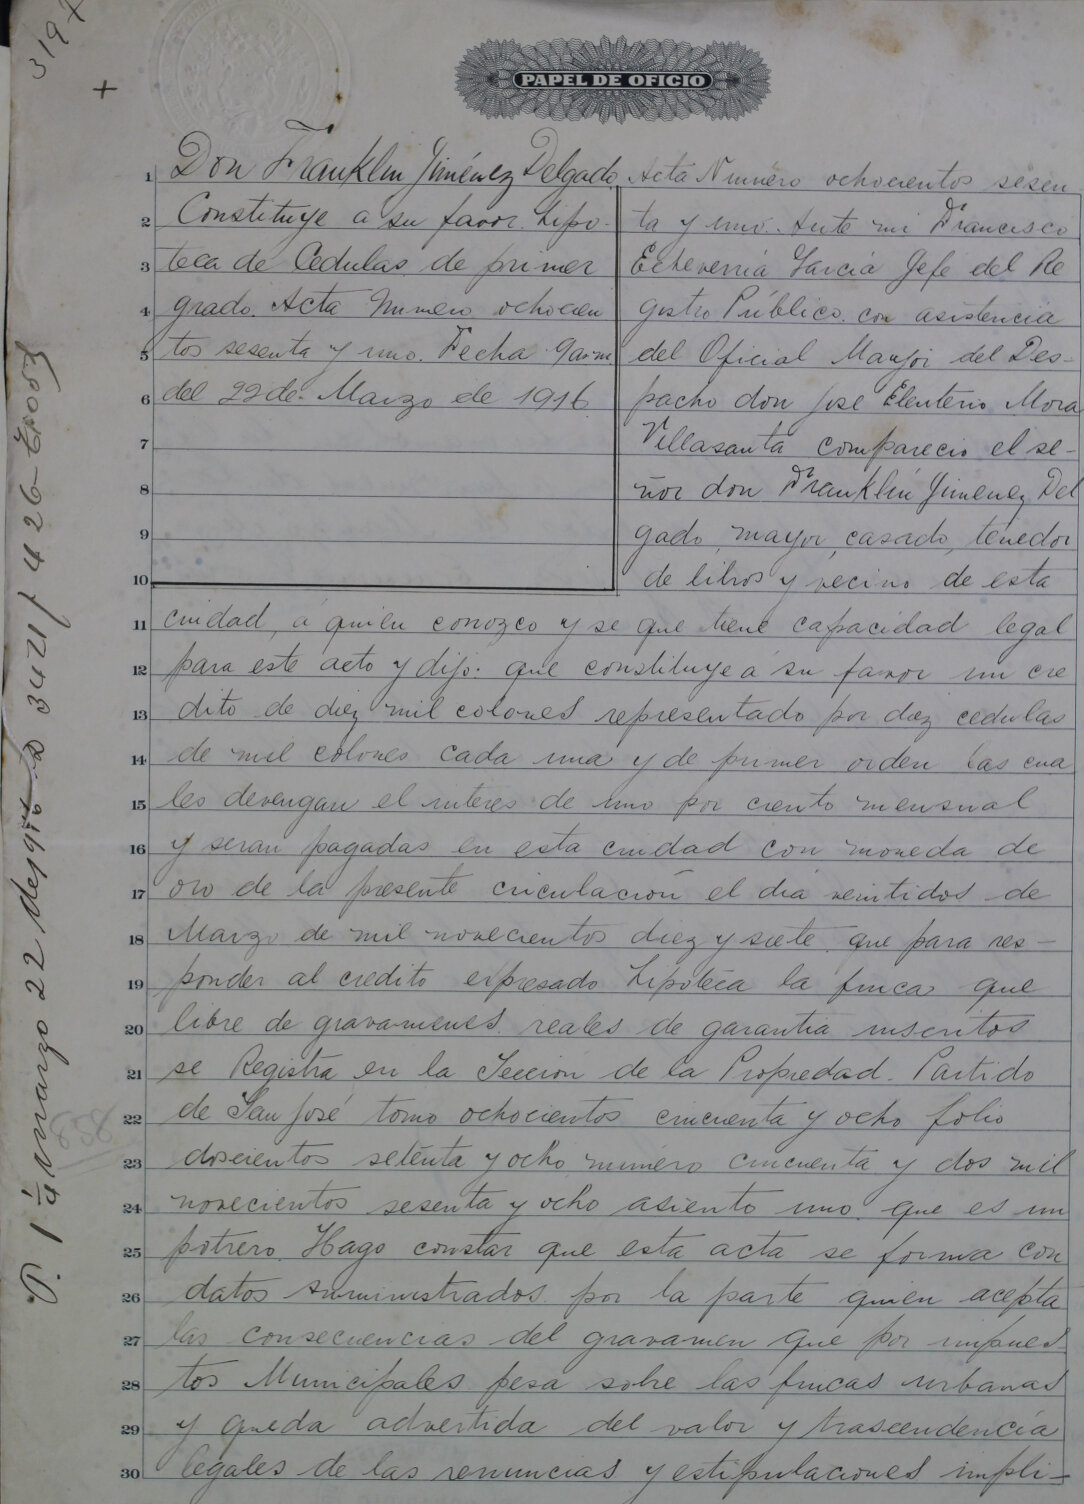 3197
+
PAPEL DE OFICIO
1 Don Franklin Jiménez Delgado
2 Constituye a su favor. Hipo-
3 teca de Cedulas de primer
4 grado. Acta Numero ochocien
5 tos sesenta y uno. Fecha 9 a.m.
6 del 22 de Marzo de 1916.
7
8
9
10
Acta Número ochocientos sesen
ta y uno. Ante mi Francisco
Echeverria García Jefe del Re
gistro Público con asistencia
del Oficial Mayor del Des-
pacho don José Eleuterio Mora
Villasanta comparecio el se-
ñor don Franklin Jimenez Del
gado, mayor, casado, tenedor
de libros y vecino de esta
11 ciudad, á quien conozco y se que tiene capacidad legal
12 para este acto y dijo: que constituye a su favor un cre
13 dito de diez mil colones representado por diez cedulas
14 de mil colones cada una y de primer orden las cua
15 les devengan el interes de uno por ciento mensual
16 y seran pagadas en esta ciudad con moneda de
17 oro de la presente circulación el dia veintidos de
18 Marzo de mil novecientos diez y siete. que para res-
19 ponder al credito expresado Hipoteca la finca que
20 libre de gravamenes reales de garantia inscritos
21 se Registra en la Sección de la Propiedad. Partido
22 de San José tomo ochocientos cincuenta y ocho folio
23 doscientos setenta y ocho número cincuenta y dos mil
24 novecientos sesenta y ocho asiento uno. que es un
25 potrero. Hago constar que esta acta se forma con
26 datos suministrados por la parte quien acepta
27 las consecuencias del gravamen que por impues-
28 tos Municipales pesa sobre las fincas urbanas
29 y queda advertida del valor y trascendencia
30 legales de las renuncias y estipulaciones impli-
P. 1 1/4 marzo 22 de 1916 a 3421/ 426
858